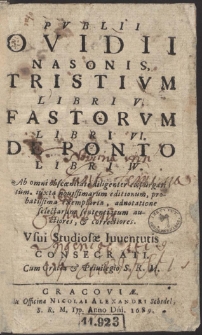 PVBLII
OVIDII
NASONIS.
TRISTIVM
LIBRI V.
FASTORVM
LIBRI VI.
DE PONTO
LIBRI IV.
Ab omni obscœnitate diligenter expurgati
tùm, iuxta novissimarum editionum, pro-
batissima exemplaria, adnotatione
selectarum sententiarum au-
ctiores, & correctiores.
Vsui Studiosæ Iuventutis
CONSECRATI
Cum Gratia & Privilegio S. R. M.
CRACOVIÆ,
in Officina NICOLAI ALEXANDRI Schedel,
S. R. M. Typ. Anno Dńi.
11.923